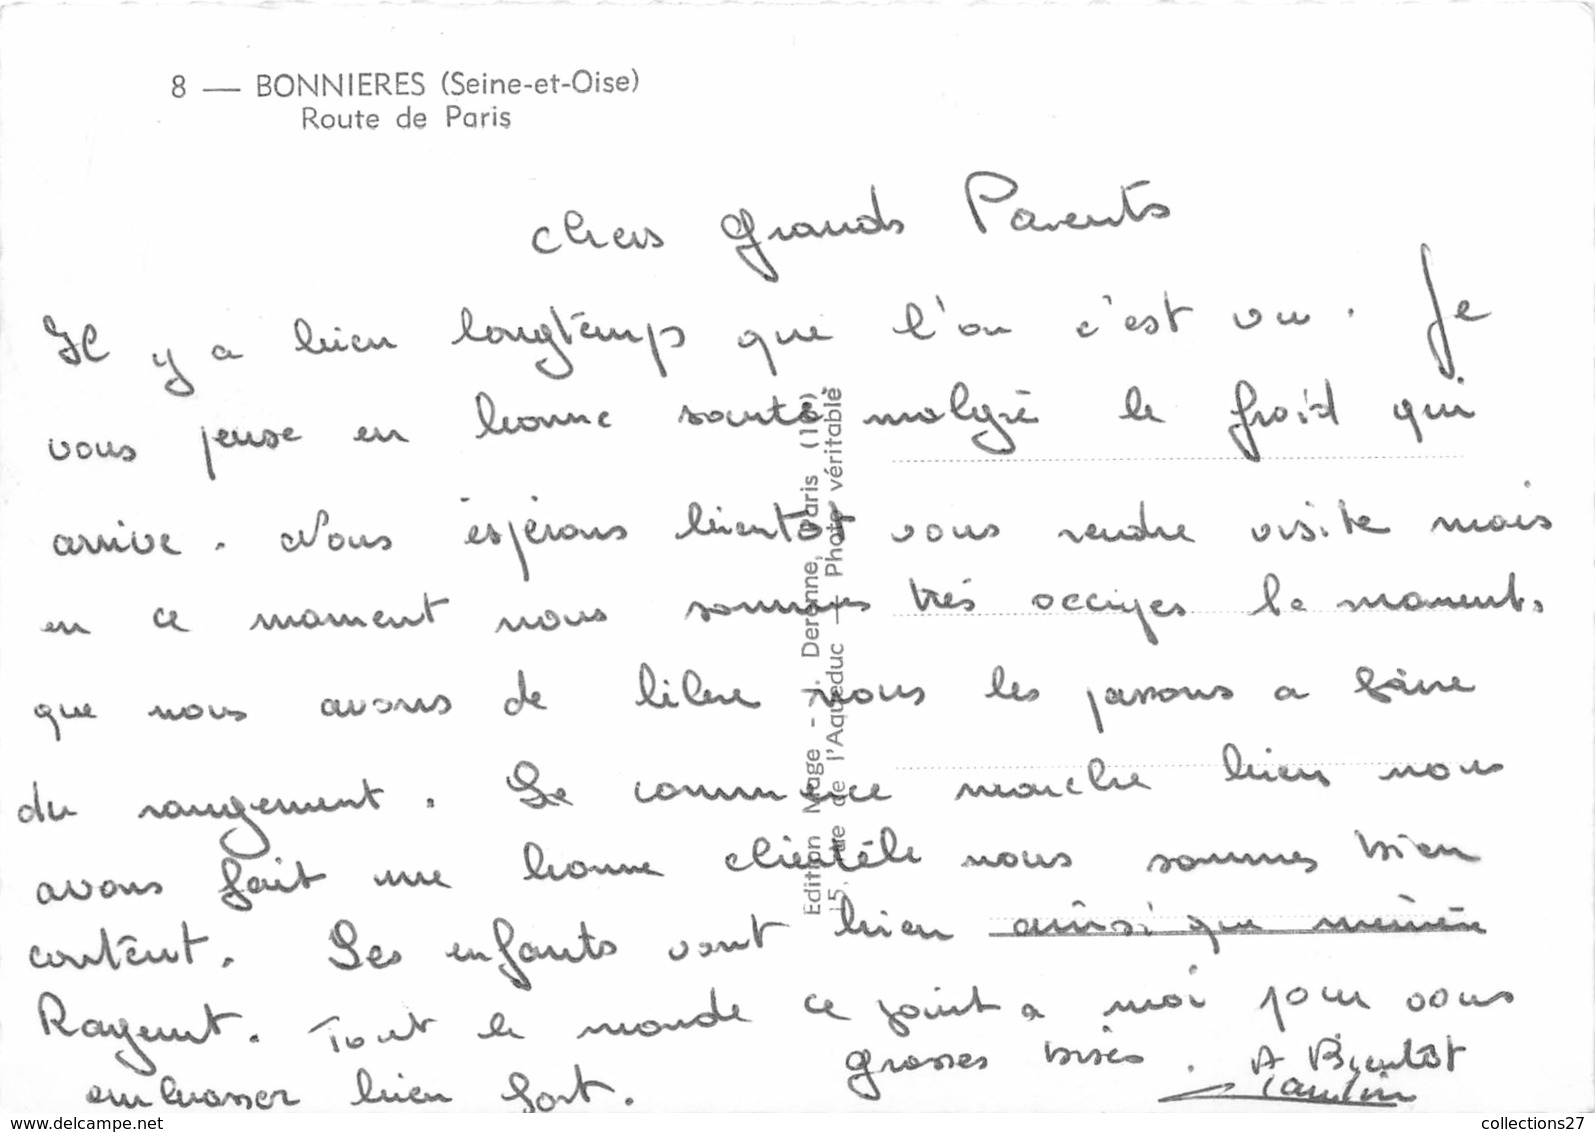 8 — BONNIERES (Seine-et-Oise)
Route de Paris
chers grands Parents
Il y a bien longtemps que l'on c'est vu. Je
vous pense en bonne santé malgré le froid qui
arrive. Nous espérons bientôt vous rendre visite mais
en ce moment nous sommes très occupes le moment.
que nous avons de libre nous les passons a faire
du rangement. Le commerce marche bien nous
avons fait une bonne clientèle nous sommes bien
content. Les enfants vont bien ainsi que
. Tout le monde ce joint a moi pour vous
embrasser bien fort. grosses bises. A Bientôt
Edition Mage - Deronne, Paris
15, rue de l'Aqueduc — Photo véritable
collections27